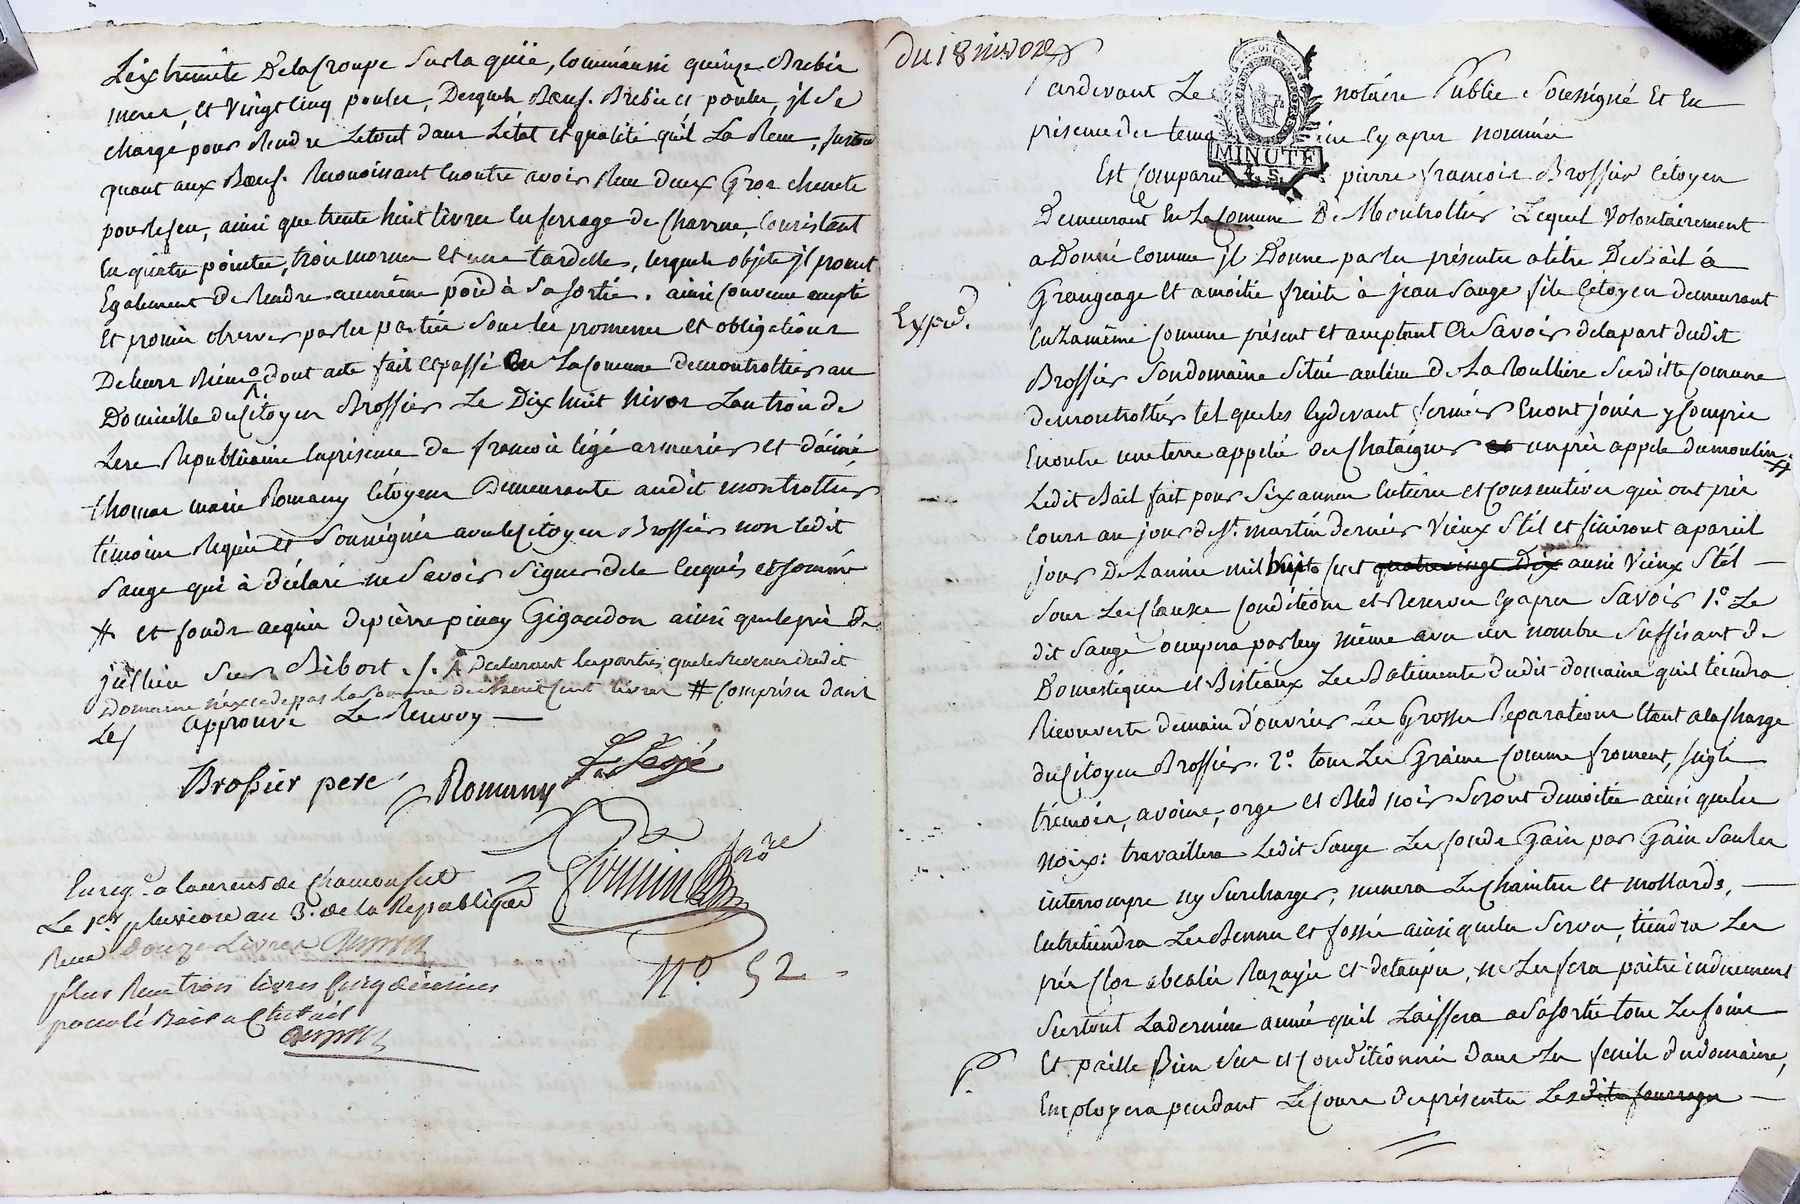 L'extremité De la Croupe Sur la quüe, Comme aussi quinze Brebis
meres, et Vingt cinq poules, Desquels Bœufs. Brebis et poules, jl Se
charge pour Rendre Le tout dans L'état et qualité qu'il La Reçu, surtout
quant aux Bœufs. Reconoissant en outre avoir Reçu deux Gros chenets
pour le feu, ainsi que trente huit livres en ferrage de Charrue, Consistant
En quatre pointes, trois mornes Et une tardelle, lesquels objets jl promet
Egalement de Rendre au même poid à Sa Sortie. ainsi Convenu accepté
Et promis observer par les parties Sous les promesses et obligations
De leurs Biens dont acte fait et passé En La Comune de montrottier au
Domicille du Citoyen Brossier Le Dix huit Nivos Lan trois de
Lere Republicaine En présence de francois légé armurier et d'aimé
thomas marie Romany Citoyens Demeurants audit montrottier
temoins Requis et Soussignés avec le Citoyen Brossier non ledit
Sauge qui à déclaré ne Savoir Signer de ce Enquis et sommé
# et fonds acquis de pierre pinay Gigandon ainsi que le pré de
jullien Sur Ribort ./. Declarant les parties que le Revenu dudit
Domaine n'excede pas La Somme de huit Cent livres # Comprises dans
Les approuvé Le Renvoy —
Broßier pere Romany F. Legé
Enregt. a laurent de Chamousset
Le 1er. pluviose an 3. de la Republique
Reçu douze Livres
plus Reçu trois livres Cinq décimes
pour le Bail a Cheptail
No. 52
du 18 nivoze
Pardevant Le notaire Public Soussigné Et En
présence des temoins cy apres nommés
MINUTE
Est Comparu pierre francois Brossier Citoyen
Demeurant En La Comune De Montrottier Lequel Volontairement
a Donné Comme jl Donne par les présentes a titre De Bail à
Grangeage Et a moitié fruits à jean Sauge fils Citoyen demeurant
Exped.
En La même Comune présent et acceptant En Savoir de la part dudit
Brossier Son domaine Situé au lieu de La Roulliere Susditte Comune
de montrottier tel que les cydevant fermiers En ont jouis y Compris
En outre une terre appelée des Chataigners un pré appele du moulin #
Ledit Bail fait pour Six années Entieres et Consecutives qui ont pris
Cours au jour de St. martin dernier Vieux Stil et finiront a pareil
jour De L'année mil huit Cent quatrevingt Dix aussi Vieux Stil —
Sous Les Clauses Conditions et Reserves Cy apres Savoir 1o. Le
dit Sauge occupera par luy même avec un nombre Suffisant de
Domestiques et Bistiaux Les Batiments dudit domaine quil tiendra
Recouverts de main d'ouvrier Les Grosses Reparations Etant a la Charge
du Citoyen Brossier. 2o. tous Les Grains Comme froment, Seigle
trémois, avoine, orge et Bled noir Seront de moitié ainsi que les
noix: travaillera Ledit Sauge Les fonds Gain par Gain Sans les
interrompre ny Surcharger, minera Les Chaintres et mollards, —
Entretiendra Les Bennes et fossés ainsi que les Serves, tiendra Les
prés Clos Razayés et détaupés, ne Les fera paitre induement
Surtout La derniere année qu'il Laissera a Sa Sortie tous Les foins
Et paille Bien Sec et Conditionnés dans Les fenils du domaine,
Employera pendant Le Cours des présentes Lesdits fourrages —